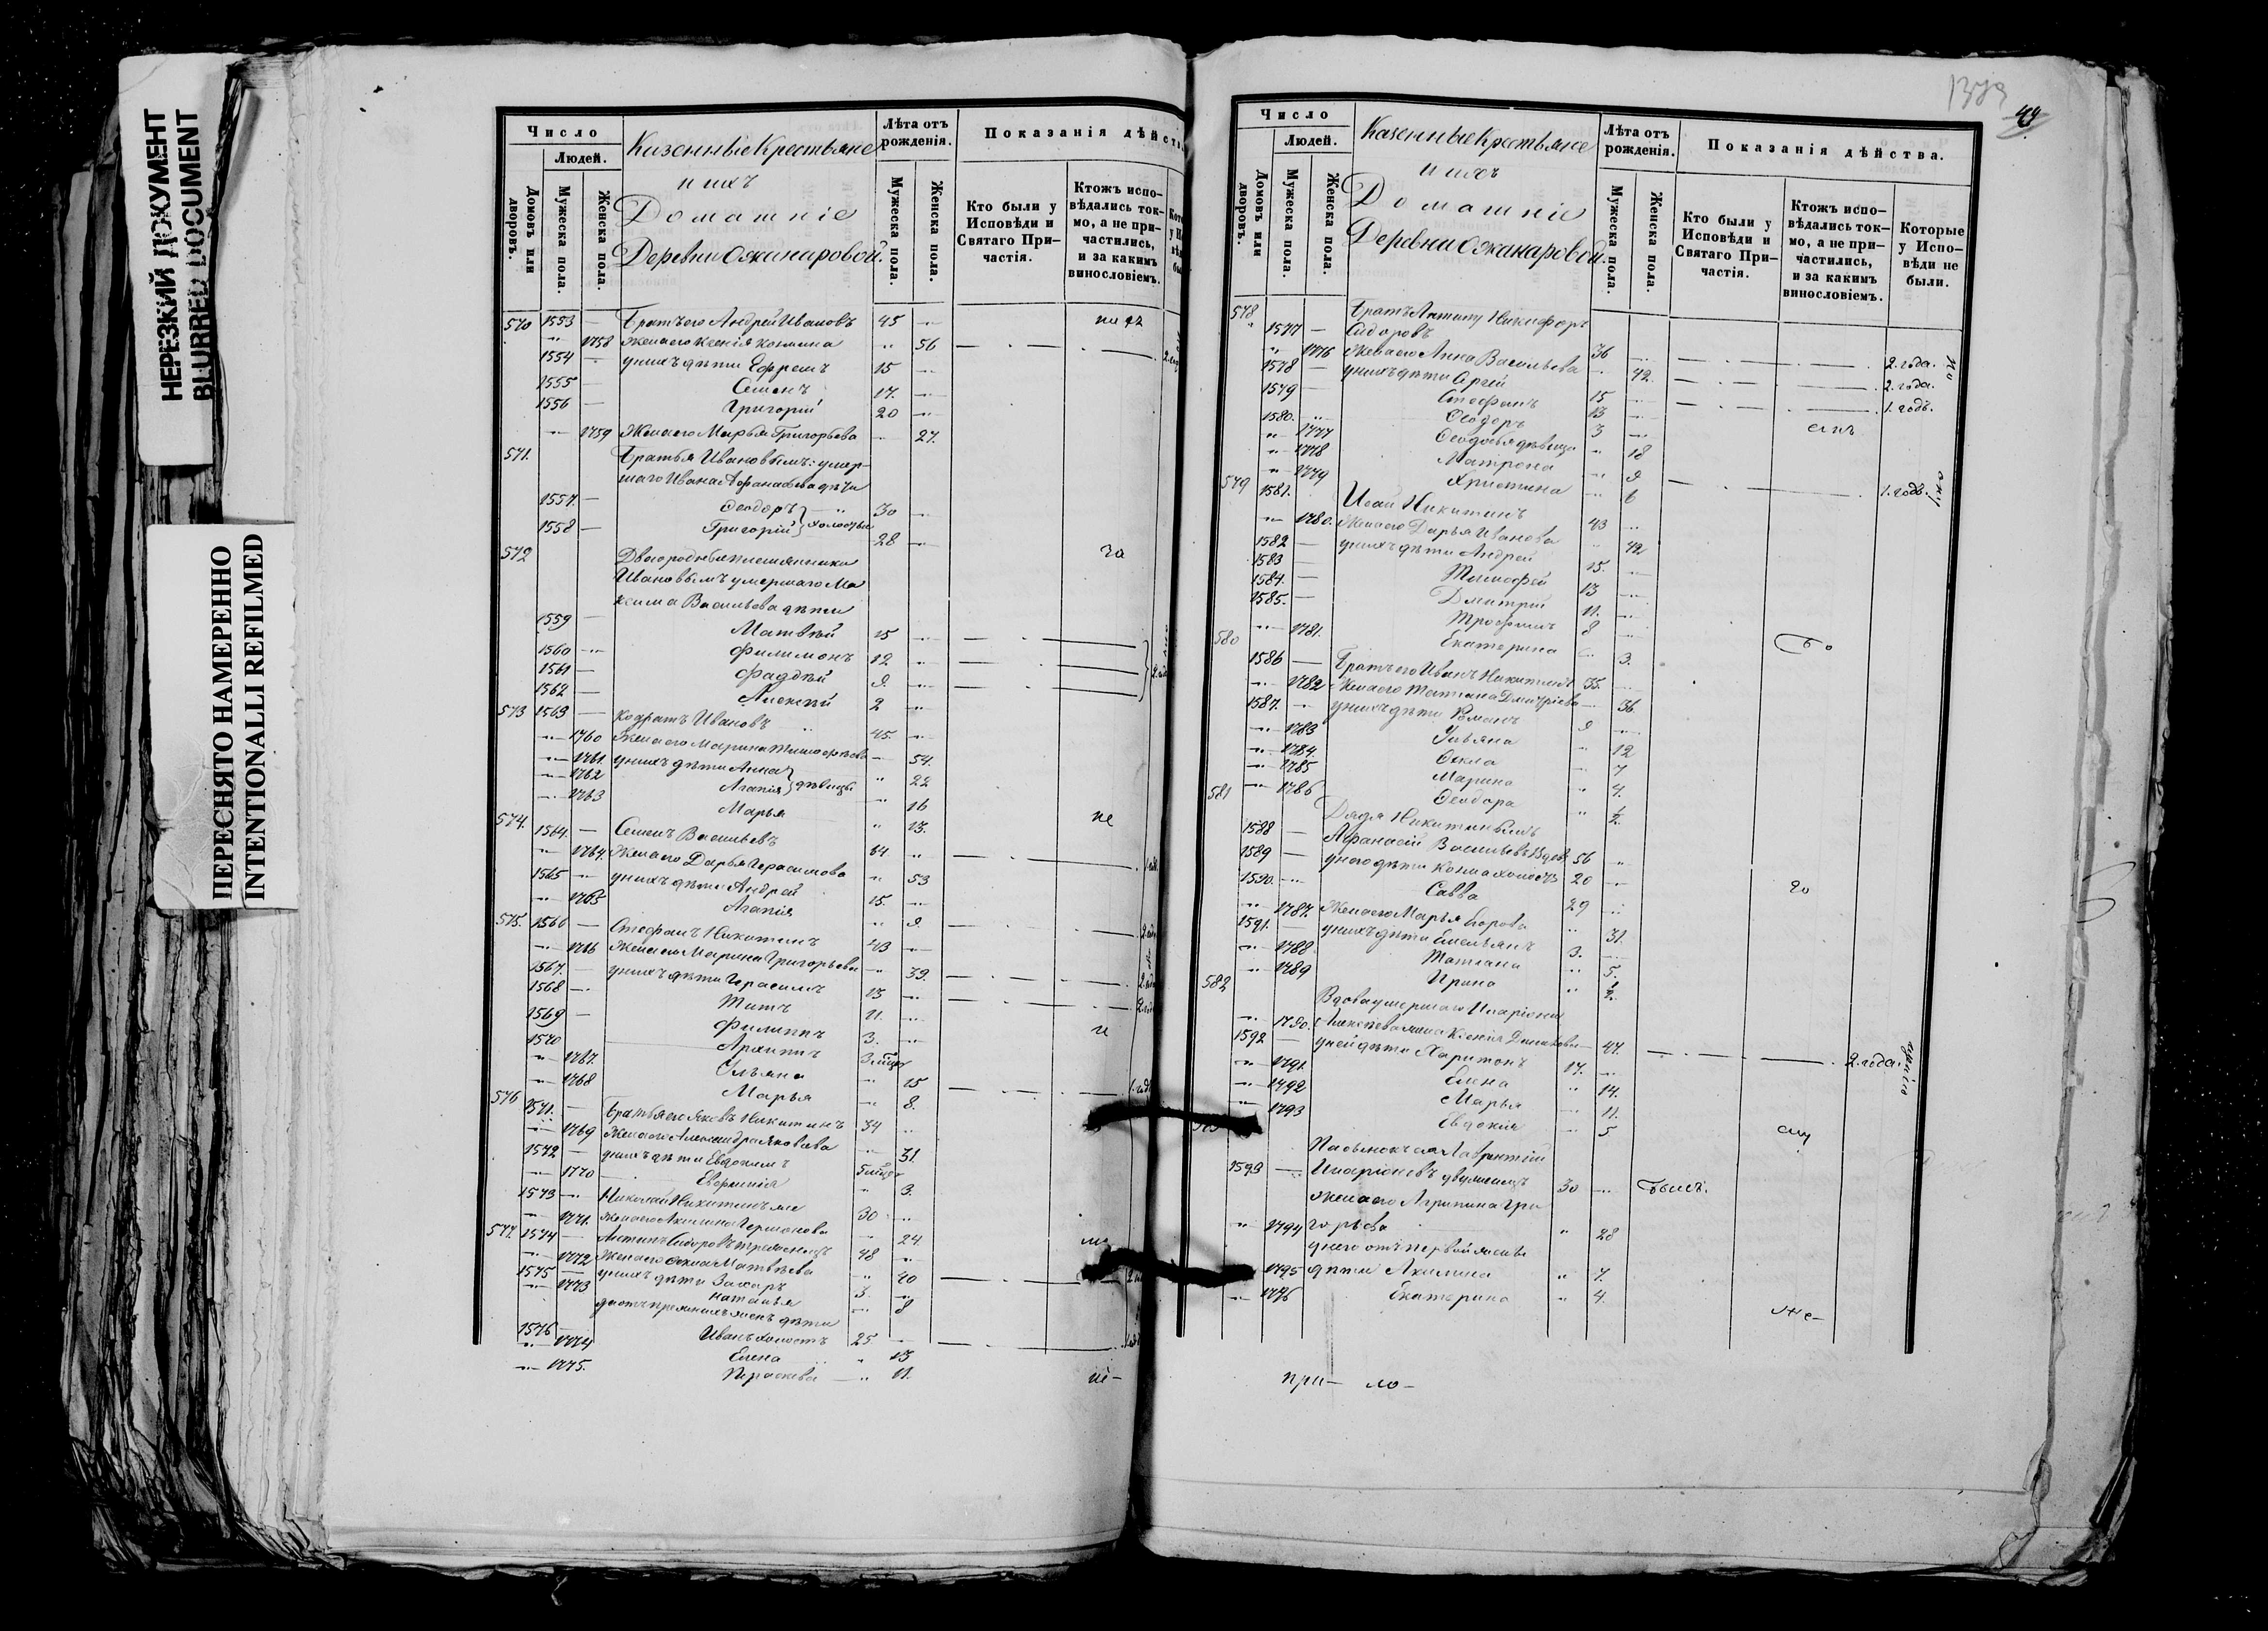 НЕРЕЗКИЙ ДОКУМЕНТ
BLURRED DOCUMENT
ПЕРЕСНЯТО НАМЕРЕННО
INTENTIONALLI REFILMED
Число
Людей.
Домовъ или дворовъ.
Мужеска пола.
Женска пола.
Казенные Крестьяне
и ихъ
Домашніе
Деревни Ожанаровой
Лѣта отъ рожденія.
Мужеска пола.
Женска пола.
Показанія дѣйст
Кто были у Исповѣди и Святаго Причастія.
Ктожъ исповѣдались токмо, а не причастились, и за какимъ винословіемъ.
570 1553 — Братъ его Андрей Ивановъ 45
1758 Жена его Ксенія Козмина 56
1554 — у нихъ дѣти Ефремъ 15
1555 — Семенъ 17.
1556 — Григорій 20
1759 Жена его Марья Григорьева 27.
571. Братья Ивановымъ: умер-
шаго Ивана Афанасьева дѣти
1557. — Ѳеодоръ 30
1558 — Григорій } холосты 28
572 Двоюродныя племянники
Ивановымъ умершаго Ма
ксима Васильева дѣти
1559 — Матвѣй 15
1560 — Филимонъ 12
1561 — Фадѣй 9.
1562 — Алексѣй 2
573 1563 — Кодратъ Ивановъ 45.
1760 Жена его Марина Тимофѣева 54.
1761 у нихъ дѣти Анна 22
1762 Агапія } дѣвицы 16
1763 Марья 13.
574. 1564. — Семенъ Васильевъ 64
1764. Жена его Дарья Герасимова 53
1565 — у нихъ дѣти Андрей 15.
1765 Агапія 9.
575. 1566 — Стефанъ Никитинъ 43
1766 Жена его Марина Григорьева 39.
1567. — у нихъ дѣти Герасимъ 13
1568 — Титъ 11.
1569 — Филиппъ 3.
1570 Архипъ
1767. Ульяна 15
1768 Марья 8.
576 1571. — Братья его Яковъ Никитинъ 34
1769 Жена его Александра Яковлева 31.
1572 — у нихъ дѣти Евдокимъ
1770 Евфимія 3.
1573 — Николай Никитинъ же 30
1771. Жена его Акилина 24.
577. 1574 — Антипъ Сидоровъ 48
1772 Жена его Ѳекла Матвѣева 40
1575 — у нихъ дѣти Захаръ 3.
1773 Наталья 8
дѣти
1576 Иванъ холостъ 25
1774 Елена 13
1775. Параскева 11.
Число
Людей.
Домовъ или дворовъ.
Мужеска пола.
Женска пола.
Казенные Крестьяне
и ихъ
Домашніе
Деревни Ожанаровой
Лѣта отъ рожденія.
Мужеска пола.
Женска пола.
Показанія дѣйства.
Кто были у Исповѣди и Святаго Причастія.
Ктожъ исповѣдались токмо, а не причастились, и за какимъ винословіемъ.
Которые у Исповѣди не были.
578 Братъ Антипу Никифоръ
1577 — Сидоровъ 36 2. года.
1776 Жена его Анна Васильева 42. 2. года.
1578 — у нихъ дѣти Сргей 15 1. годъ.
1579 Стефанъ 13
1580. Ѳеодоръ 3
1777 Ѳеодосья дѣвица 18
1778 Матрена 9
1779 Христина 6
579 1581. Исай Никитинъ 43 1. годъ.
1780. Жена его Дарья Иванова 42
1582 — у нихъ дѣти Андрей 15.
1583 — Тимофей 13
1584. — Дмитрій 11.
1585. — Трофимъ 8
1781. Екатерина 3.
580 1586 — Братъ его Иванъ Никитинъ 35.
1782 Жена его Татіана Дмитріева 36.
1587. — у нихъ дѣти Романъ 9
1783 Ульяна 12
1784. Ѳекла 7
1785 Марина 4.
1786 Ѳеодора
581 Дядя Никитинымъ
1588 — Афанасій Васильевъ вдов 56
1589 — у него дѣти Козма холостъ 20
1590. Савва 29
1787. Жена его Марья Егорова 31.
1591. — у нихъ дѣти Емельянъ 3.
1788 Татіана 5.
1789 Ирина
582 Вдова умершаго Иларіона
1790. Алексѣева жена Ксенія 47. 2. года.
1592 — у ней дѣти Харитонъ 17.
1791. Елена 14.
1792 Марья 11.
1793 Евдокія 5
Пасынокъ ея Лаврентій
1593 — Иларіоновъ 30 былъ.
Жена его Агрипина Гри
1794 горьева 28
у него отъ первой жены
1795 дѣти Акилина 7.
1796 Екатерина 4.
при— ло—